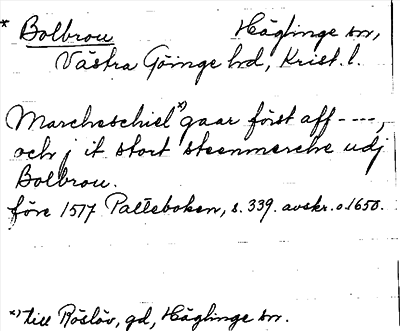 * Bolbrou Häglinge sn,
Västra Göinge hd, Krist. l.
Marcheschiel*) gaar först aff ----,
och j it stort steenmerche udj
Bolbrou.
före 1577 Palteboken, s. 339. avskr. o. 1650.
*) till Röslöv, gd, Häglinge sn.